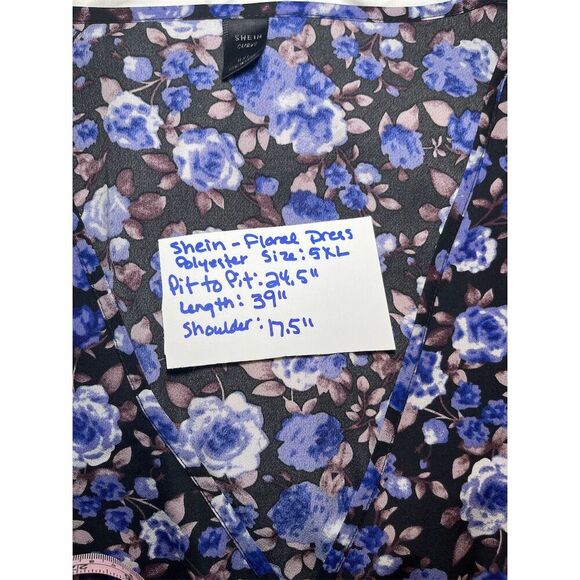 SHEIN
CURVE
Shein - Floral Dress
Polyester Size: 5XL
Pit to Pit: 24.5"
Length: 39"
Shoulder: 17.5"